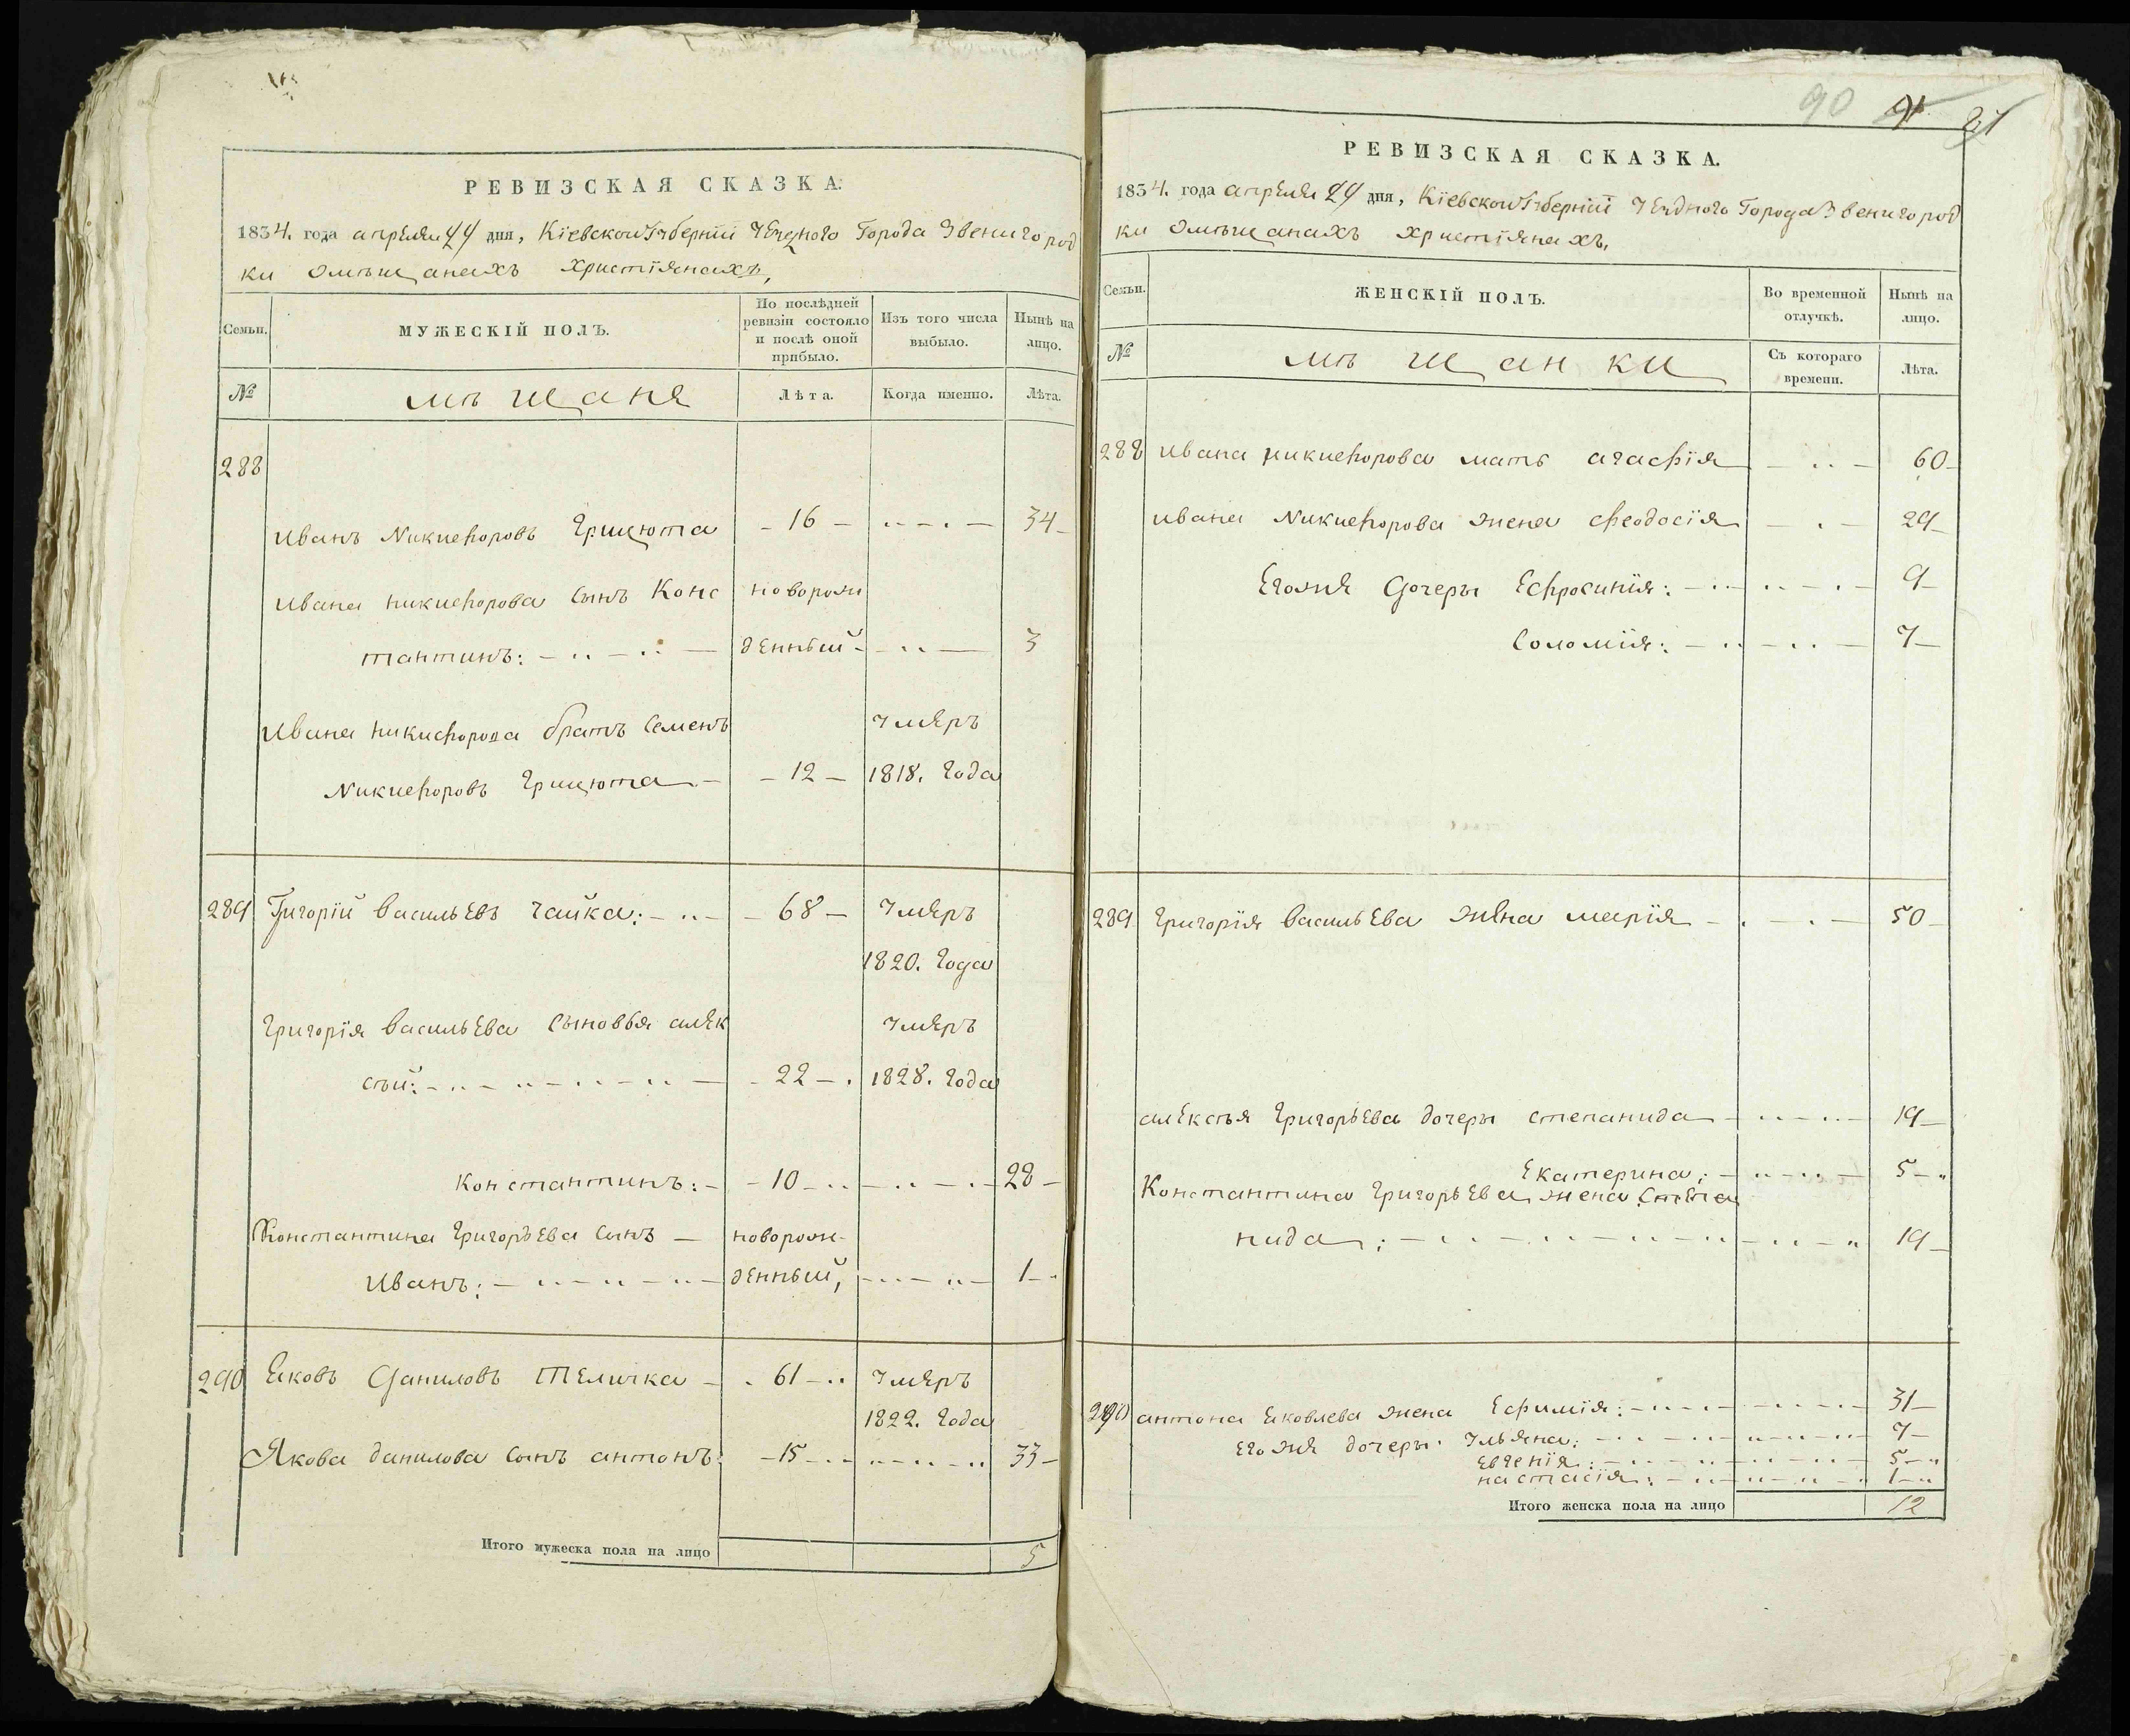 РЕВИЗСКАЯ СКАЗКА.
1834. года апреля дня, Кіевской Губерніи Уезднаго Города Звенигород
ки Омѣщанахъ Христіянахъ,
Семьи.
МУЖЕСКІЙ ПОЛЪ.
По послѣдней ревизіи состояло и послѣ оной прибыло.
Изъ того числа выбыло.
Нынѣ на лицо.
№
мѣщаня
Лѣта.
Когда именно.
Лѣта.
288
Иванъ Никиѳоровъ Грицюта - 16 - 34
Ивана Никиѳорова сынъ Конс новорож
тантинъ: денный 3
Ивана Никиѳорова братъ Семенъ умеръ
Никиѳоровъ Грицюта - 12 - 1818. года
289 Григорій Васильевъ Чайка: - 68 - умеръ
1820. года
Григорія Васильева сыновья алек умеръ
сѣй: - 22 - 1828. года
Константинъ: - 10 - 28 -
Константина Григорьева сынъ - новорож-
Иванъ: денный, 1 -
290 Яковъ Даниловъ Теличка - 61 - умеръ
1822. года
Якова данилова сынъ антонъ: - 15 - 33 -
Итого мужеска пола на лицо 5
90 91
РЕВИЗСКАЯ СКАЗКА.
1834. года апреля дня, Кіевской Губерніи Уезднаго Города Звенигород
ки Омѣщанахъ Христіянахъ,
Семьи.
ЖЕНСКІЙ ПОЛЪ.
Во временной отлучкѣ.
Нынѣ на лицо.
№
мѣщанки
Съ котораго времени.
Лѣта.
288 Ивана Никиѳорова мать агафія 60
Ивана Никиѳорова жена феодосія 29
Егожя дочеры Ефросинія: 9
Соломія: 7
289 Григорія Васильева жена марія 50
алексѣя Григорьева дочеры степанида 19
Екатерина: 5
Константина Григорьева жена Степа
нида: 19
290 антона Яковлева жена Ефимія: 31
Егожя дочеры: Ульяна: 7
Евгенія: 5
настасія: 1
Итого женска пола на лицо 12